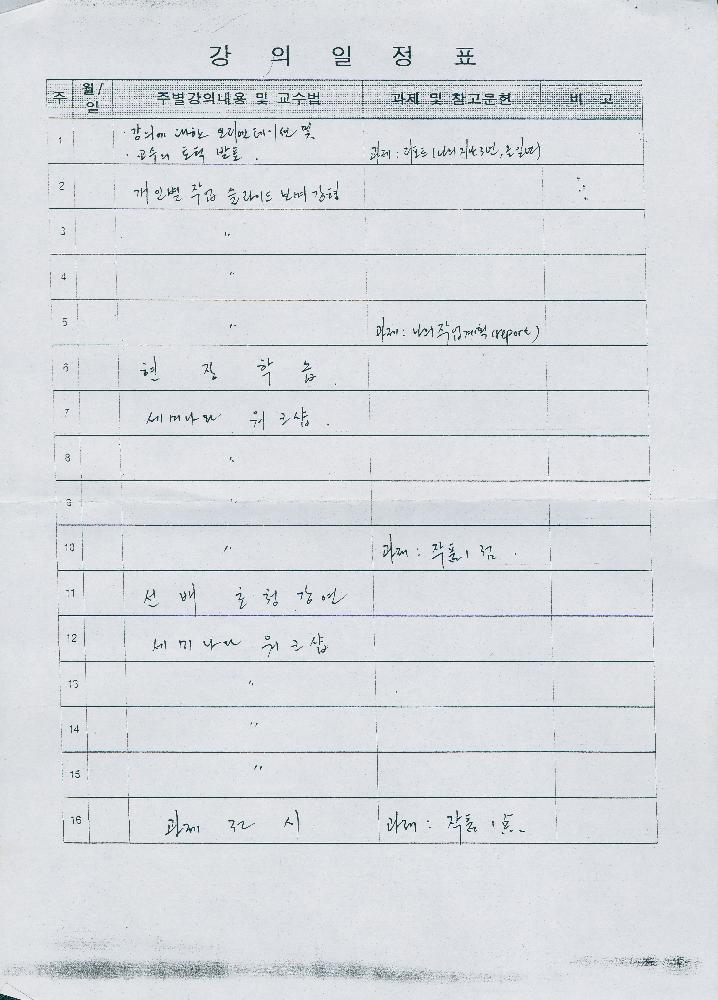 강 의 일 정 표
주 월/일 주별강의내용 및 교수법 과제 및 참고문헌 비 고
1 · 강의에 대한 오리엔테이션 및
· 교수의 토픽 발표. 과제 : 리포트 (나의 지난 3년,
2 개인별 작업 슬라이드 보며
3 "
4 "
5 " 과제 : 나의 작업계획 (report)
6 현 장 학 습
7 세미나와 워크샵.
8 "
9 "
10 " 과제 : 작품 1 점.
11 선 배 초 청 강 연
12 세미나와 워크샵
13 "
14 "
15 "
16 과제 전 시 과제 : 작품 1